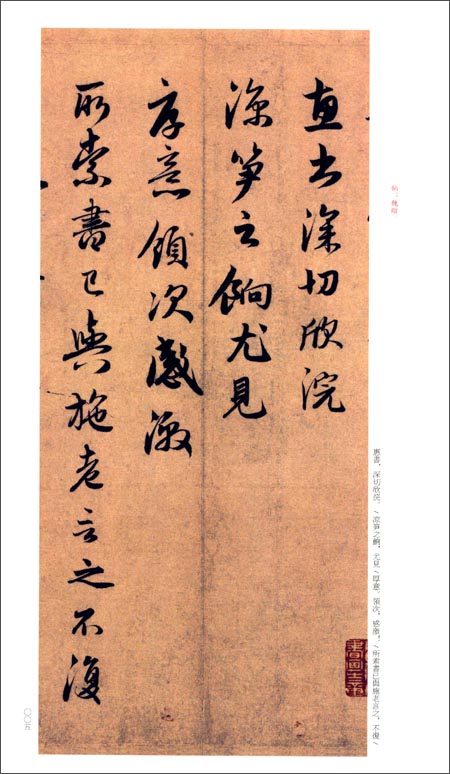 惠書,深切欣浣。/涼筍之餉,尤見/厚意,領次,感激。/所索書已與施老言之,不復/
惠書深切欣浣
涼筍之餉尤見
厚意領次感激
所索書已與施老言之不復
〇〇五